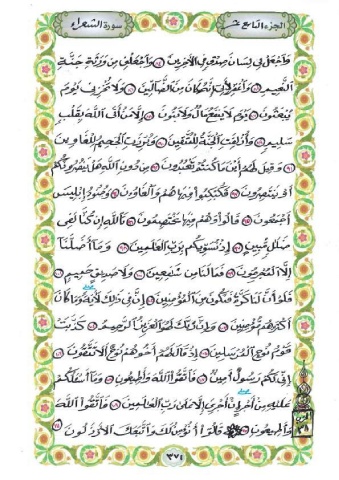 الجزء التاسع عشر سورة الشعراء
وَاجْعَل لِّي لِسَانَ صِدْقٍ فِي الْآخِرِينَ ٨٤ وَاجْعَلْنِي مِن وَرَثَةِ جَنَّةِ
النَّعِيمِ ٨٥ وَاغْفِرْ لِأَبِي إِنَّهُ كَانَ مِنَ الضَّالِّينَ ٨٦ وَلَا تُخْزِنِي يَوْمَ
يُبْعَثُونَ ٨٧ يَوْمَ لَا يَنفَعُ مَالٌ وَلَا بَنُونَ ٨٨ إِلَّا مَنْ أَتَى اللَّهَ بِقَلْبٍ
سَلِيمٍ ٨٩ وَأُزْلِفَتِ الْجَنَّةُ لِلْمُتَّقِينَ ٩٠ وَبُرِّزَتِ الْجَحِيمُ لِلْغَاوِينَ
٩١ وَقِيلَ لَهُمْ أَيْنَ مَا كُنتُمْ تَعْبُدُونَ ٩٢ مِن دُونِ اللَّهِ هَلْ يَنصُرُونَكُمْ
أَوْ يَنتَصِرُونَ ٩٣ فَكُبْكِبُوا فِيهَا هُمْ وَالْغَاوُونَ ٩٤ وَجُنُودُ إِبْلِيسَ
أَجْمَعُونَ ٩٥ قَالُوا وَهُمْ فِيهَا يَخْتَصِمُونَ ٩٦ تَاللَّهِ إِن كُنَّا لَفِي
ضَلَالٍ مُّبِينٍ ٩٧ إِذْ نُسَوِّيكُم بِرَبِّ الْعَالَمِينَ ٩٨ وَمَا أَضَلَّنَا
إِلَّا الْمُجْرِمُونَ ٩٩ فَمَا لَنَا مِن شَافِعِينَ ١٠٠ وَلَا صَدِيقٍ حَمِيمٍ ١٠١
فَلَوْ أَنَّ لَنَا كَرَّةً فَنَكُونَ مِنَ الْمُؤْمِنِينَ ١٠٢ إِنَّ فِي ذَٰلِكَ لَآيَةً وَمَا كَانَ
أَكْثَرُهُم مُّؤْمِنِينَ ١٠٣ وَإِنَّ رَبَّكَ لَهُوَ الْعَزِيزُ الرَّحِيمُ ١٠٤ كَذَّبَتْ
قَوْمُ نُوحٍ الْمُرْسَلِينَ ١٠٥ إِذْ قَالَ لَهُمْ أَخُوهُمْ نُوحٌ أَلَا تَتَّقُونَ ١٠٦
إِنِّي لَكُمْ رَسُولٌ أَمِينٌ ١٠٧ فَاتَّقُوا اللَّهَ وَأَطِيعُونِ ١٠٨ وَمَا أَسْأَلُكُمْ
عَلَيْهِ مِنْ أَجْرٍ إِنْ أَجْرِيَ إِلَّا عَلَىٰ رَبِّ الْعَالَمِينَ ١٠٩ فَاتَّقُوا اللَّهَ
وَأَطِيعُونِ ١١٠ قَالُوا أَنُؤْمِنُ لَكَ وَاتَّبَعَكَ الْأَرْذَلُونَ ١١١
٣٧١